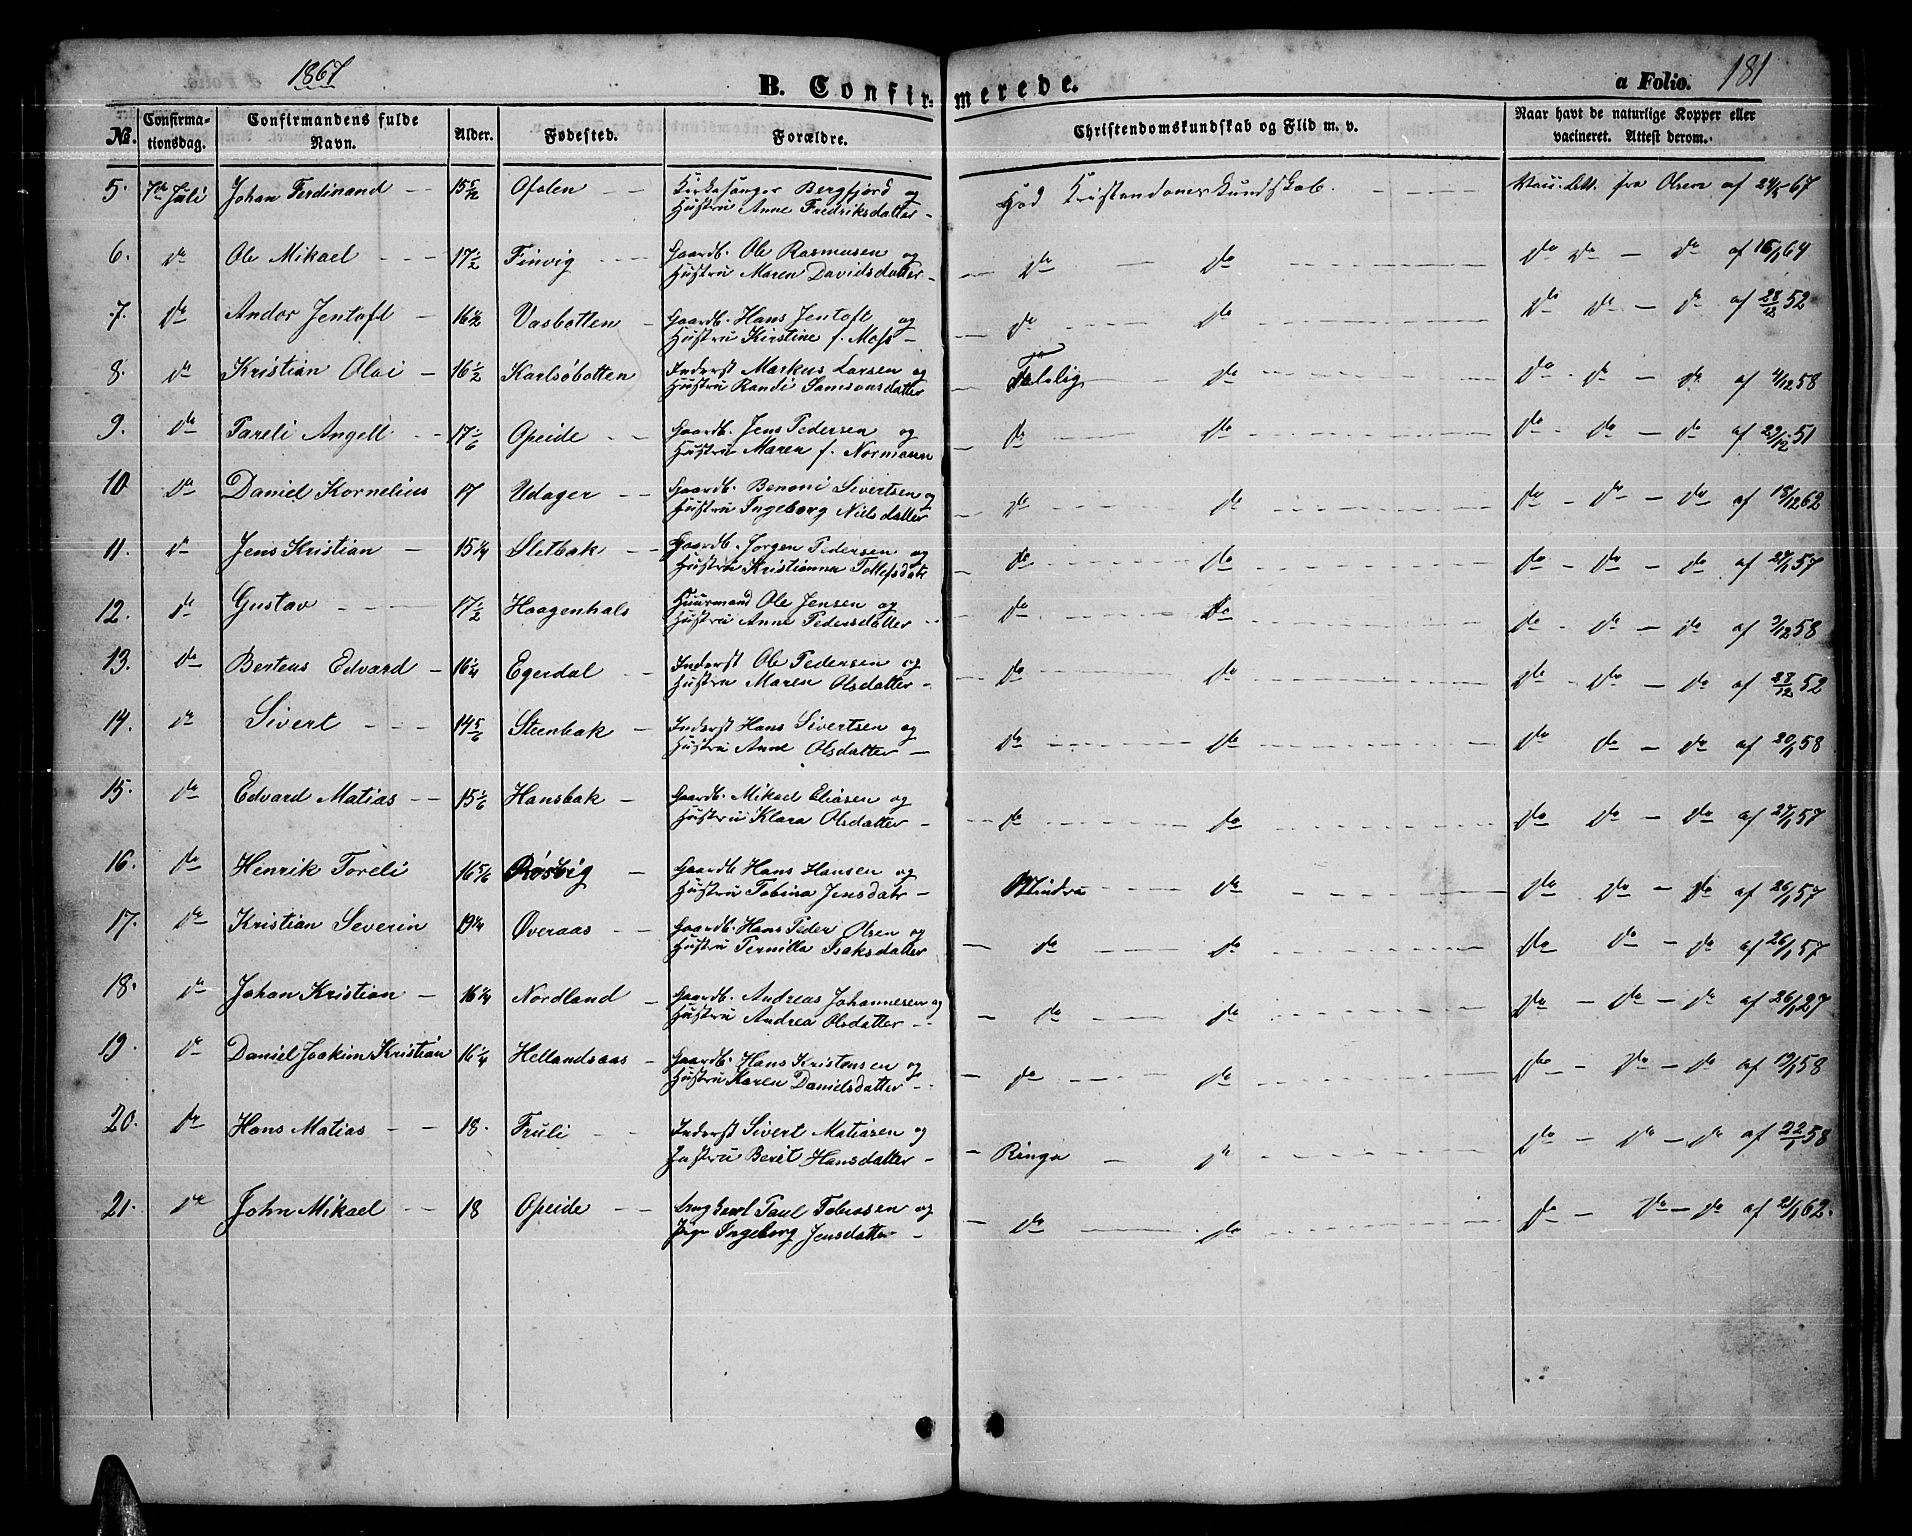 1867
B. Confirmerede.
a Folio. 181
No. Confirmationsdag. Confirmandens fulde Navn. Alder. Fødested. Forældre. Christendomskundskab og Flid m. v. Naar havt de naturlige Kopper eller vacineret. Attest derom.
5. 7de Juli Johan Ferdinand 15 5/12 Ofoten Kirkesanger Bergfjord og God Kristendomskundskab. fra Olsen af 67
Hustru Anne Fredriksdatter
6. do Ole Mikael 17 1/2 Finvig Gaardb. Ole Rasmusen og do do do do do af 64
Hustru Maren Davidsdatter
7. do Andor Jentoft 16 1/2 Vasbotten Gaardb. Hans Jentoft og do do do do do af 28/12 52
Hustru Kirstine f. Moss
8. do Kristian Olai 16 1/2 Karlsøbotten Inderst Markus Larsen og Taalelig do do do do af 4/12 58
Hustru Randi Samsonsdatter
9. do Pareli Angell 17 1/6 Opeide Gaardb. Jens Pedersen og do do do do do af 29/12 51
Hustru Maren f. Normann
10 do Daniel Kornelius 17 Udager Gaardb. Benoni Sivertsen og do do do do do af 18/12 62
Hustru Ingeborg Nielsdatter
11. do Jens Kristian 15 1/4 Sletbak Gaardb. Jørgen Pedersen og do do do do do af 27/1 57
Hustru Kristianna Tollefsdatr
12. do Gustav 17 1/2 Haagenhals Huusmand Ole Jensen og do do do do do af 3/12 58
Hustru Anne Pedersdatter
13. do Berteus Edvard 16 1/4 Egerdal Inderst Ole Pedersen og do do do do do af 28/12 52
Hustru Maren Olsdatter
14. do Sivert 14 5/6 Steenbak Inderst Hans Sivertsen og do do do do do af 20/1 58
Hustru Anne Olsdatter
15. do Edvard Matias 15 1/6 Hansbak Gaardb. Mikael Eliasen og do do do do do af 27/1 57
Hustru Klara Olsdatter
16. do Henrik Toreli 16 5/6 Røsvig Gaardb. Hans Hansen og Mindre do do do do af 26/1 57
Hustru Tobina Jensdatr
17. do Kristian Severin 19 1/4 Overaas Gaardb. Hans Peder Olsen og do do do do do af 26/1 57
Hustru Pernilla Isaksdatter
18. do Johan Kristian 16 1/4 Nordland Gaardb. Andreas Johannesen og do do do do do af 26/1 27
Hustru Andrea Olsdatter
19. do Daniel Joakim Kristian 16 1/4 Hellandsaas Gaardb. Hans Kristensen og do do do do do af 19/1 58
Hustru Karen Danielsdatter
20. do Hans Matias 18. Fruli Inderst Sivert Matiasen og Ringe do do do do af 22/1 58
Hustru Berit Hansdatter
21. do John Mikael 18 Opeide Ungkarl Paul Tobiasen og do do do do do af 21/1 62.
Pige Ingeborg Jensdatter